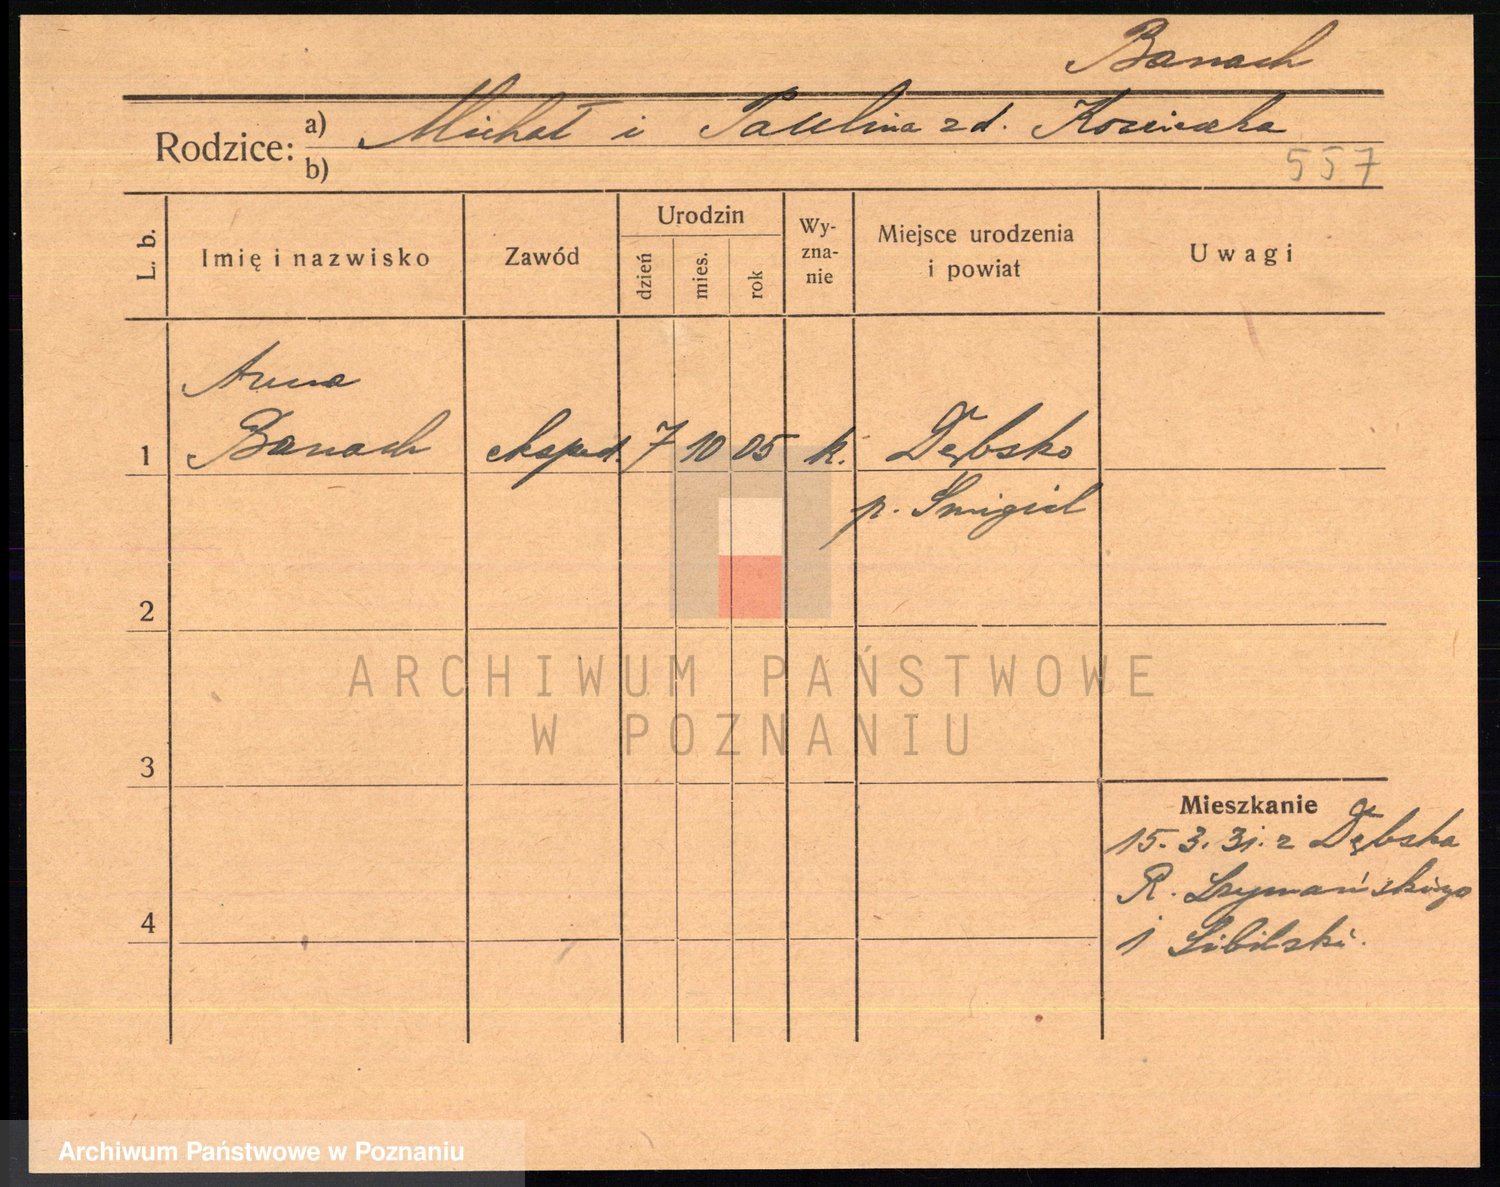 Banach
Rodzice: a) Michał i Paulina zd.
b)
557
L. b.
Imię i nazwisko
Zawód
Urodzin
dzień
mies.
rok
Wy-
zna-
nie
Miejsce urodzenia
i powiat
Uwagi
Anna
1 Banach eksped. 7 10 05 k. Dębsko
p. Śmigiel
2
ARCHIWUM PAŃSTWOWE
W POZNANIU
3
Mieszkanie
15. 3. 31. z Dębska
R. Szymańskiego
4
Archiwum Państwowe w Poznaniu